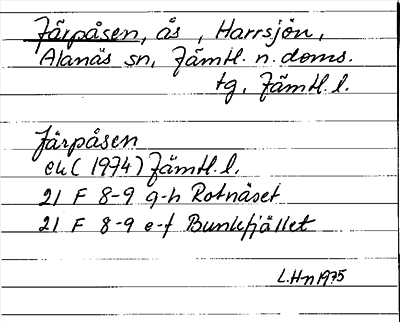 Järpåsen, ås, Harrsjön,
Alanäs sn, Jämtl. n. doms.
tg, Jämtl. l.
Järpåsen
ek (1974) Jämtl. l.
21 F 8-9 g-h Rotnäset
21 F 8-9 e-f Bunkfjället
L.Hn 1975